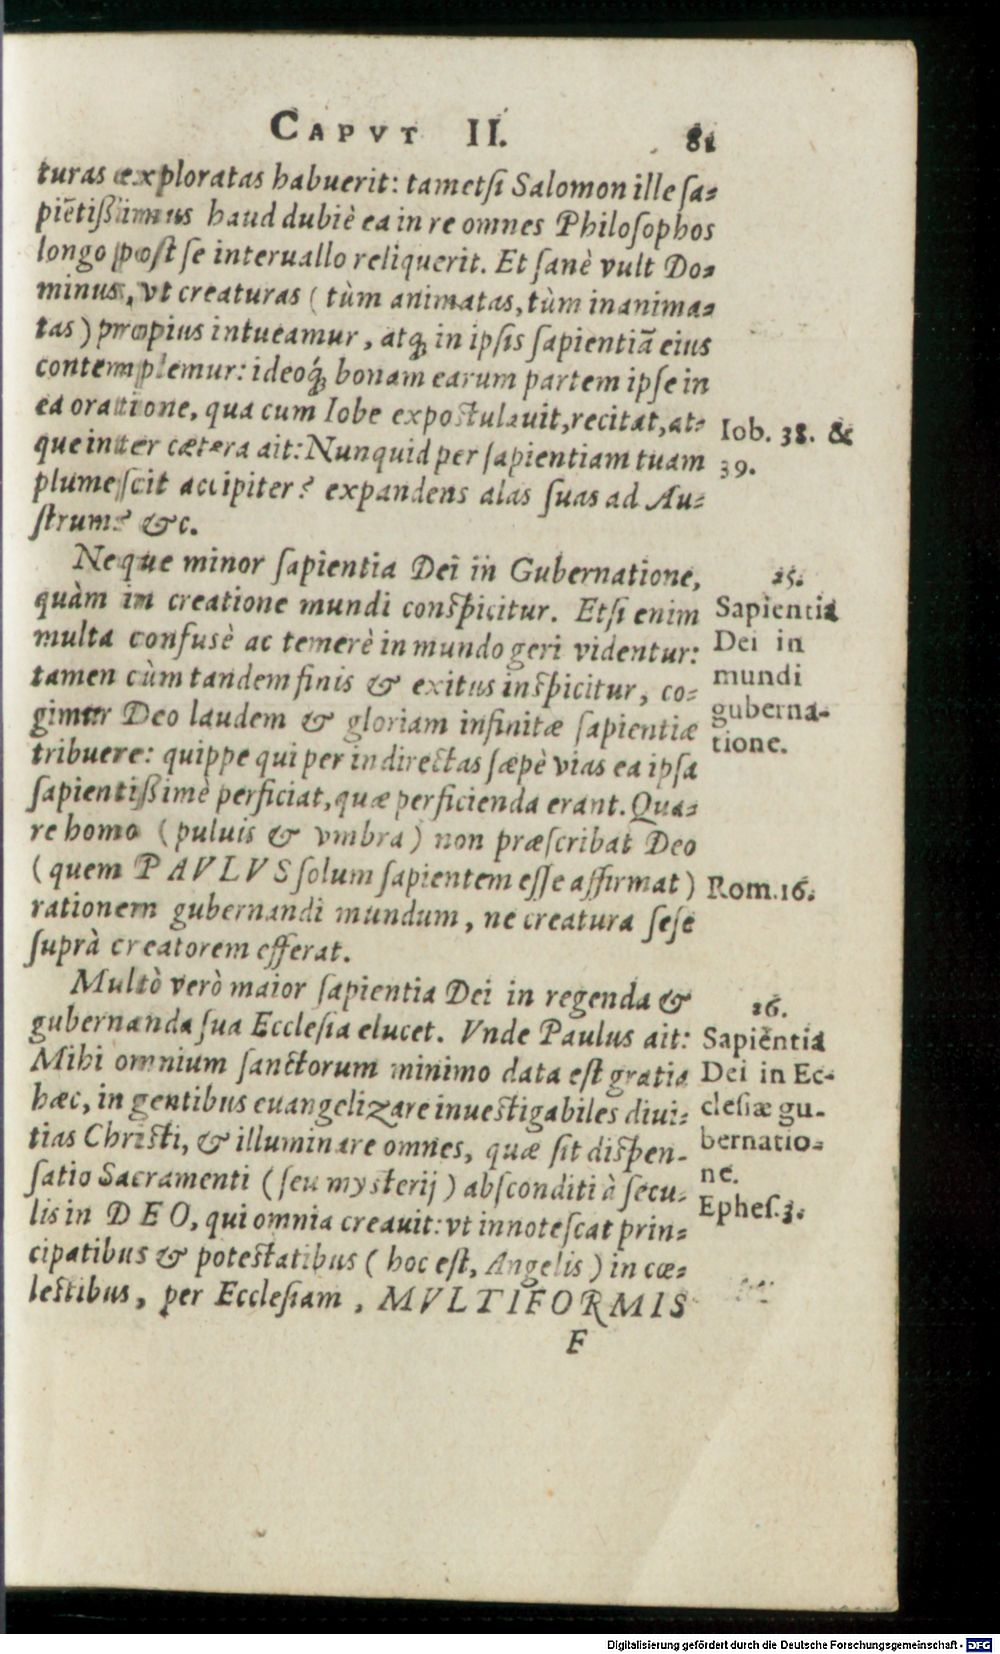 CAPVT II. 81
turas exploratas habuerit: tametsi Salomon ille sa-
piẽtißimus haud dubiè ea in re omnes Philosophos
longo post se interuallo reliquerit. Et sanè vult Do-
minus, vt creaturas (tùm animatas, tùm inanima-
tas) propius intueamur, atq; in ipsis sapientiã eius
contemplemur: ideoq́; bonam earum partem ipse in
ea oratione, qua cum Iobe expostulauit, recitat, at-
que inter cætera ait: Nunquid per sapientiam tuam
plumescit accipiter? expandens alas suas ad Au-
strum? &c.
Iob. 38. &
39.
Neque minor sapientia Dei in Gubernatione,
quàm in creatione mundi conspicitur. Etsi enim
multa confusè ac temerè in mundo geri videntur:
tamen cùm tandem finis & exitus inspicitur, co-
gimur Deo laudem & gloriam infinitæ sapientiæ
tribuere: quippe qui per indirectas sæpè vias ea ipsa
sapientißimè perficiat, quæ perficienda erant. Qua-
re homo (puluis & vmbra) non præscribat Deo
(quem PAVLVS solum sapientem esse affirmat)
rationem gubernandi mundum, ne creatura sese
suprà creatorem efferat.
25.
Sapientia
Dei in
mundi
guberna-
tione.
Rom.16.
Multò verò maior sapientia Dei in regenda &
gubernanda sua Ecclesia elucet. Vnde Paulus ait:
Mihi omnium sanctorum minimo data est gratia
hæc, in gentibus euangelizare inuestigabiles diui-
tias Christi, & illuminare omnes, quæ sit dispen-
satio Sacramenti (seu mysterij) absconditi à secu-
lis in DEO, qui omnia creauit: vt innotescat prin-
cipatibus & potestatibus (hoc est, Angelis) in cæ-
lestibus, per Ecclesiam, MVLTIFORMIS
26.
Sapiẽntia
Dei in Ec-
clesiæ gu-
bernatio-
ne.
Ephes.3.
F
Digitalisierung gefördert durch die Deutsche Forschungsgemeinschaft - DFG